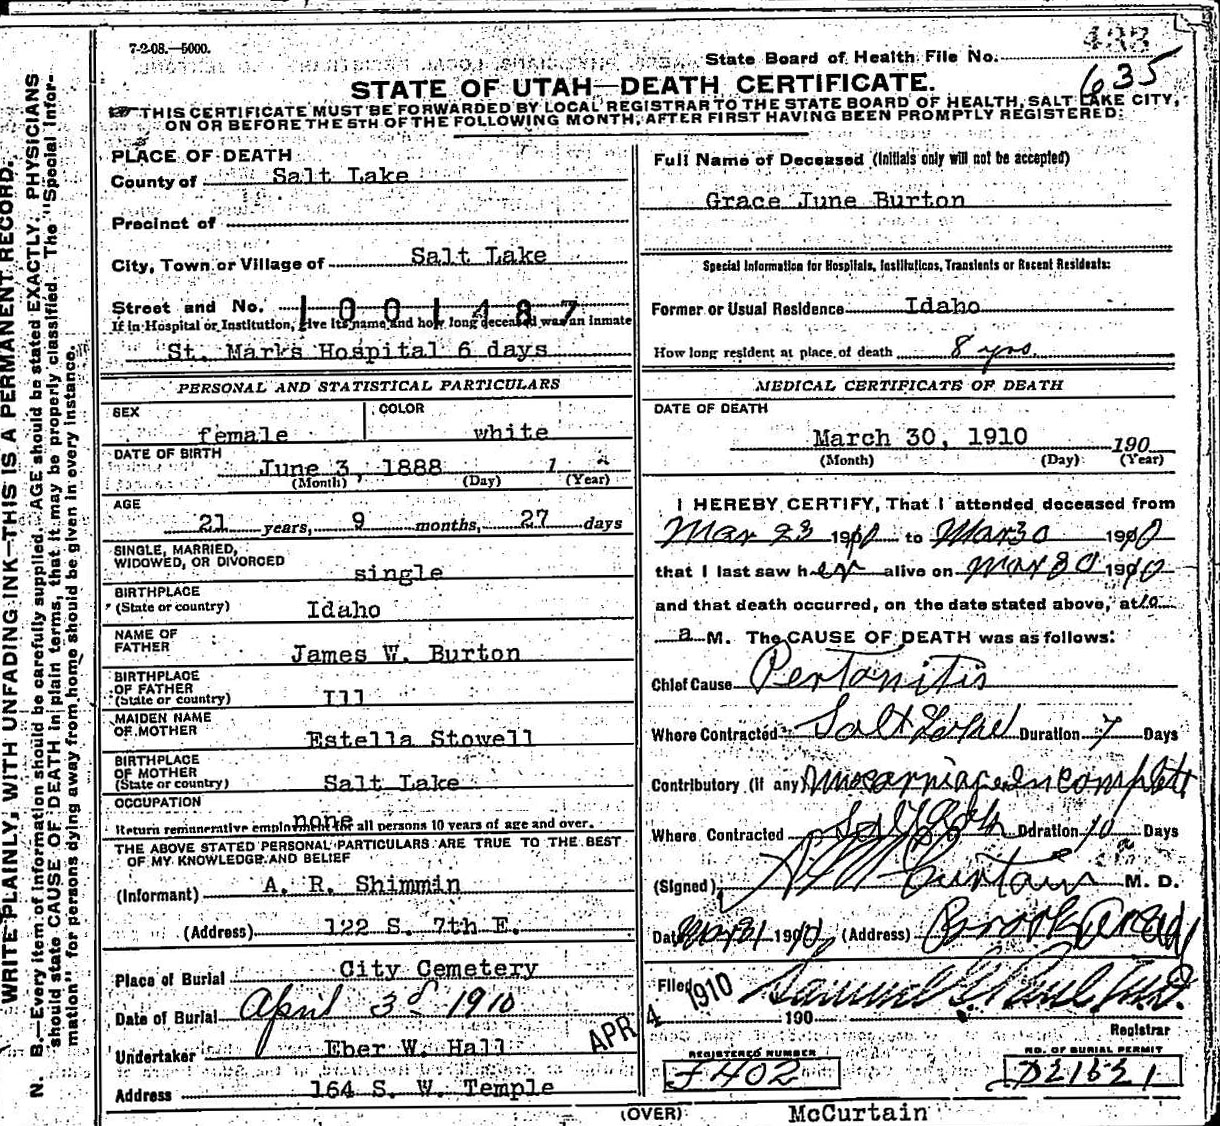 7-2-08.—5000.
State Board of Health File No. 433
635
STATE OF UTAH—DEATH CERTIFICATE.
THIS CERTIFICATE MUST BE FORWARDED BY LOCAL REGISTRAR TO THE STATE BOARD OF HEALTH, SALT LAKE CITY,
ON OR BEFORE THE 5TH OF THE FOLLOWING MONTH, AFTER FIRST HAVING BEEN PROMPTLY REGISTERED:
PLACE OF DEATH
County of Salt Lake
Precinct of
City, Town or Village of Salt Lake
Street and No. 1001487
If in Hospital or Institution, give its name and how long deceased was an inmate
St. Marks Hospital 6 days
PERSONAL AND STATISTICAL PARTICULARS
SEX COLOR
female white
DATE OF BIRTH
June 3, 1888 1
(Month) (Day) (Year)
AGE
21 years, 9 months, 27 days
SINGLE, MARRIED,
WIDOWED, OR DIVORCED
single
BIRTHPLACE
(State or country) Idaho
NAME OF
FATHER James W. Burton
BIRTHPLACE
OF FATHER
(State or country) Ill
MAIDEN NAME
OF MOTHER Estella Stowell
BIRTHPLACE
OF MOTHER
(State or country) Salt Lake
OCCUPATION
none
Return remunerative employment for all persons 10 years of age and over.
THE ABOVE STATED PERSONAL PARTICULARS ARE TRUE TO THE BEST
OF MY KNOWLEDGE AND BELIEF
(Informant) A. R. Shimmin
(Address) 122 S. 7th E.
Place of Burial City Cemetery
Date of Burial April 3d 1910
Undertaker Eber W. Hall
Address 164 S. W. Temple
Full Name of Deceased (Initials only will not be accepted)
Grace June Burton
Special Information for Hospitals, Institutions, Transients or Recent Residents:
Former or Usual Residence Idaho
How long resident at place of death 8 yrs.
MEDICAL CERTIFICATE OF DEATH
DATE OF DEATH
March 30, 1910 190
(Month) (Day) (Year)
I HEREBY CERTIFY, That I attended deceased from
Mar 23 1910 to Mar 30 1910
that I last saw her alive on Mar 30 1910
and that death occurred, on the date stated above, at 10
a M. The CAUSE OF DEATH was as follows:
Chief Cause Pertonitis
Where Contracted Salt Lake Duration 7 Days
Contributory (if any) Miscarriage Incomplete
Where Contracted Salt Lake Duration 10 Days
(Signed) McCurtain M. D.
Date Mar 31 1910 (Address) Brooks Arcade
Filed APR 4 1910 190
Registrar
REGISTERED NUMBER NO. OF BURIAL PERMIT
J402 D21621
(OVER) McCurtain
WRITE PLAINLY, WITH UNFADING INK—THIS IS A PERMANENT RECORD.
N. B.—Every item of information should be carefully supplied. AGE should be stated EXACTLY. PHYSICIANS
should state CAUSE OF DEATH in plain terms, that it may be properly classified. The "Special Infor-
mation" for persons dying away from home should be given in every instance.